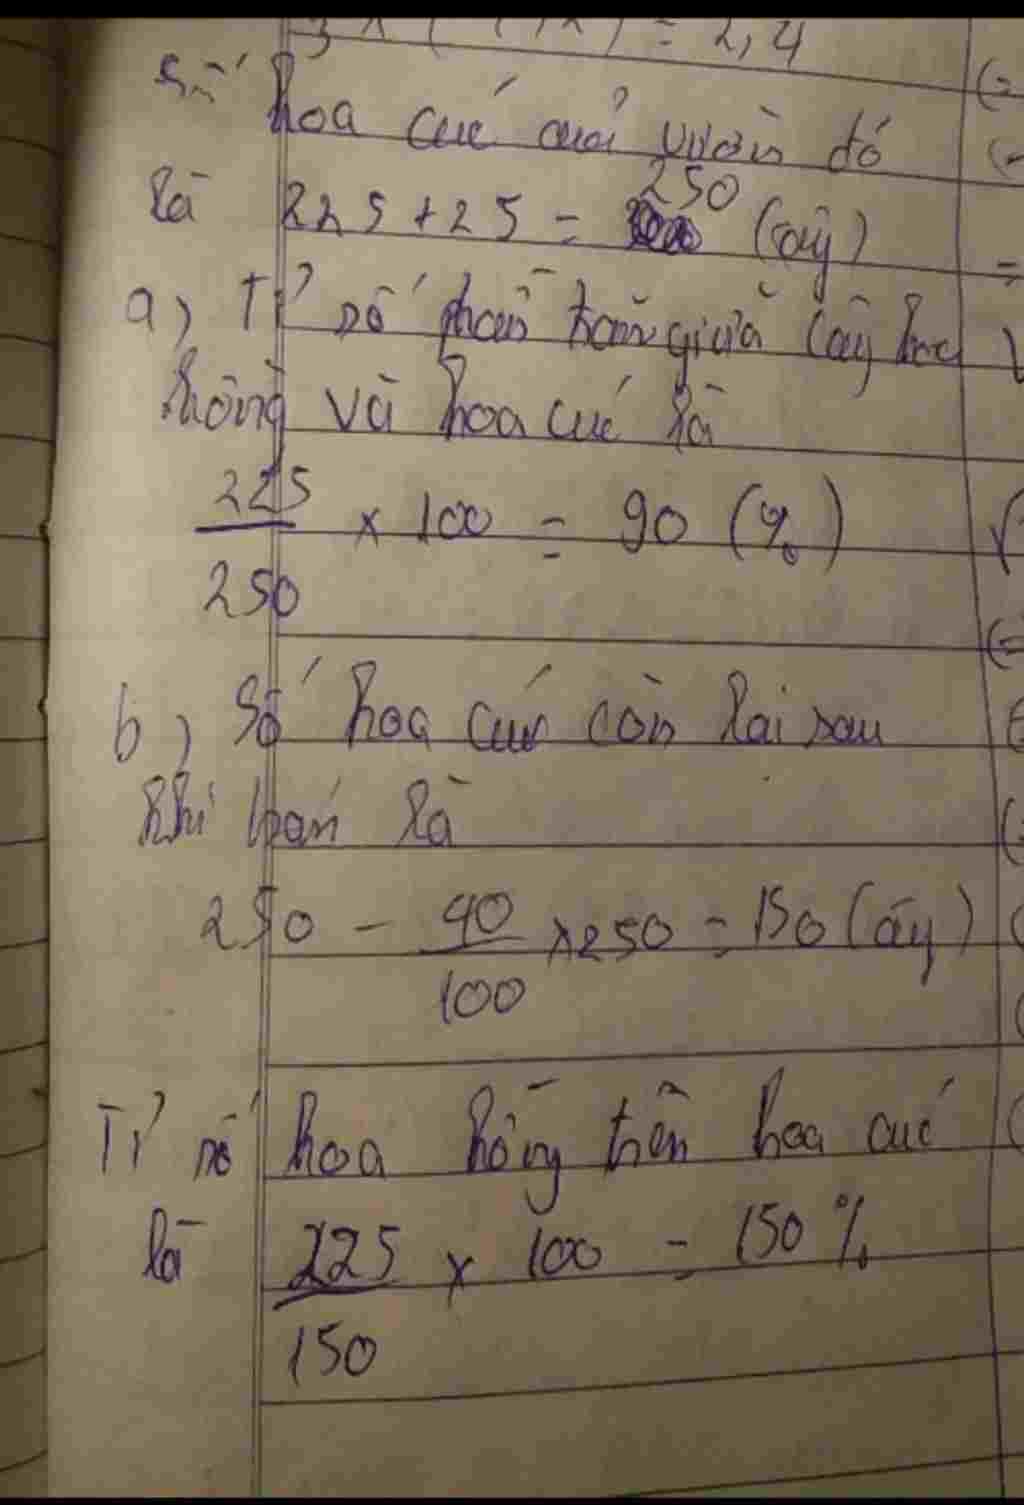 = 2,4
Số hoa cúc của vườn đó
là 225 + 25 = 250 (cây)
a) Tỉ số phần trăm giữa cây hoa
hồng và hoa cúc là
225/250 × 100 = 90 (%)
b) Số hoa cúc còn lại sau
khi bán là
250 - 40/100 × 250 = 150 (cây)
Tỉ số hoa hồng trên hoa cúc
là 225/150 × 100 = 150 %